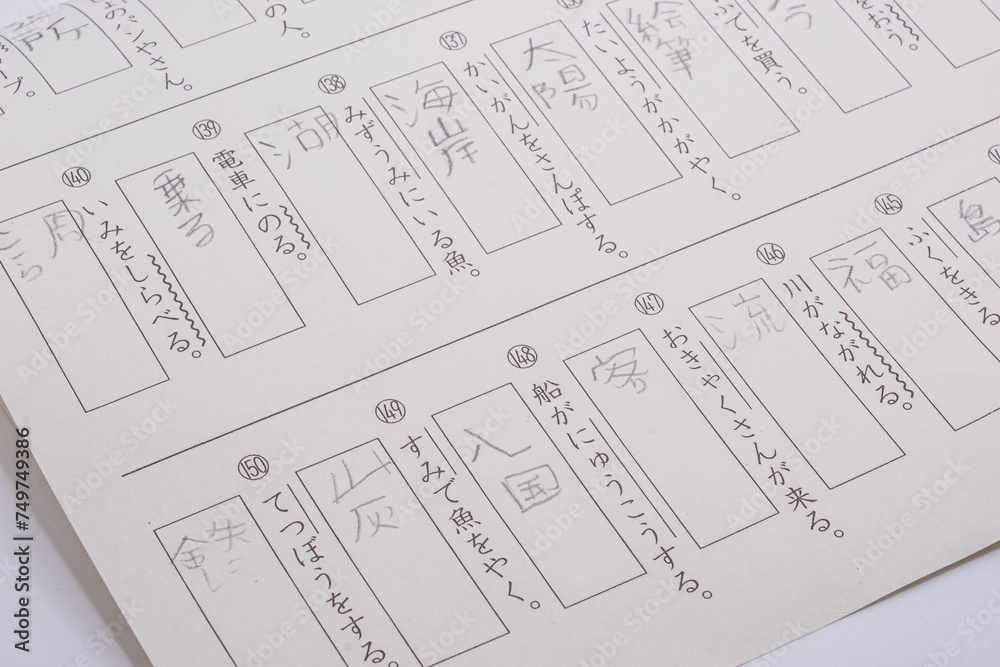 の人。
のパンやさん。
う。
ふでを買う。
絵筆
たいようがかがやく。
太陽
137
かいがんをさんぽする。
海岸
138
みずうみにいる魚。
湖
139
電車にのる。
乗る
140
いみをしらべる。
島
145
ふくをきる
福
146
川がながれる。
流
147
おきゃくさんが来る。
客
148
船がにゅうこうする。
入国
149
すみで魚をやく。
山灰
150
てつぼうをする。
鉄
Adobe Stock | #749749386